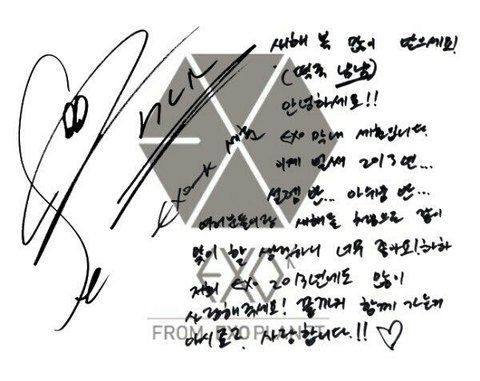 새해 복 많이 받으세요!
(떡국 냠냠)
안녕하세요!!
EXO-K 세훈
EXO 막내 세훈입니다.
이제 벌써 2013년...
설렘 반... 아쉬움 반...
여러분들이랑 새해를 처음으로 같이
맞이 할 생각하니 너무 좋아요! 하하
EXO
저희 EXO 2013년에도 많이
사랑해주세요! 끝까지 함께 가는거
아시죠? 사랑합니다.!! ♡
FROM. EXOPLANET